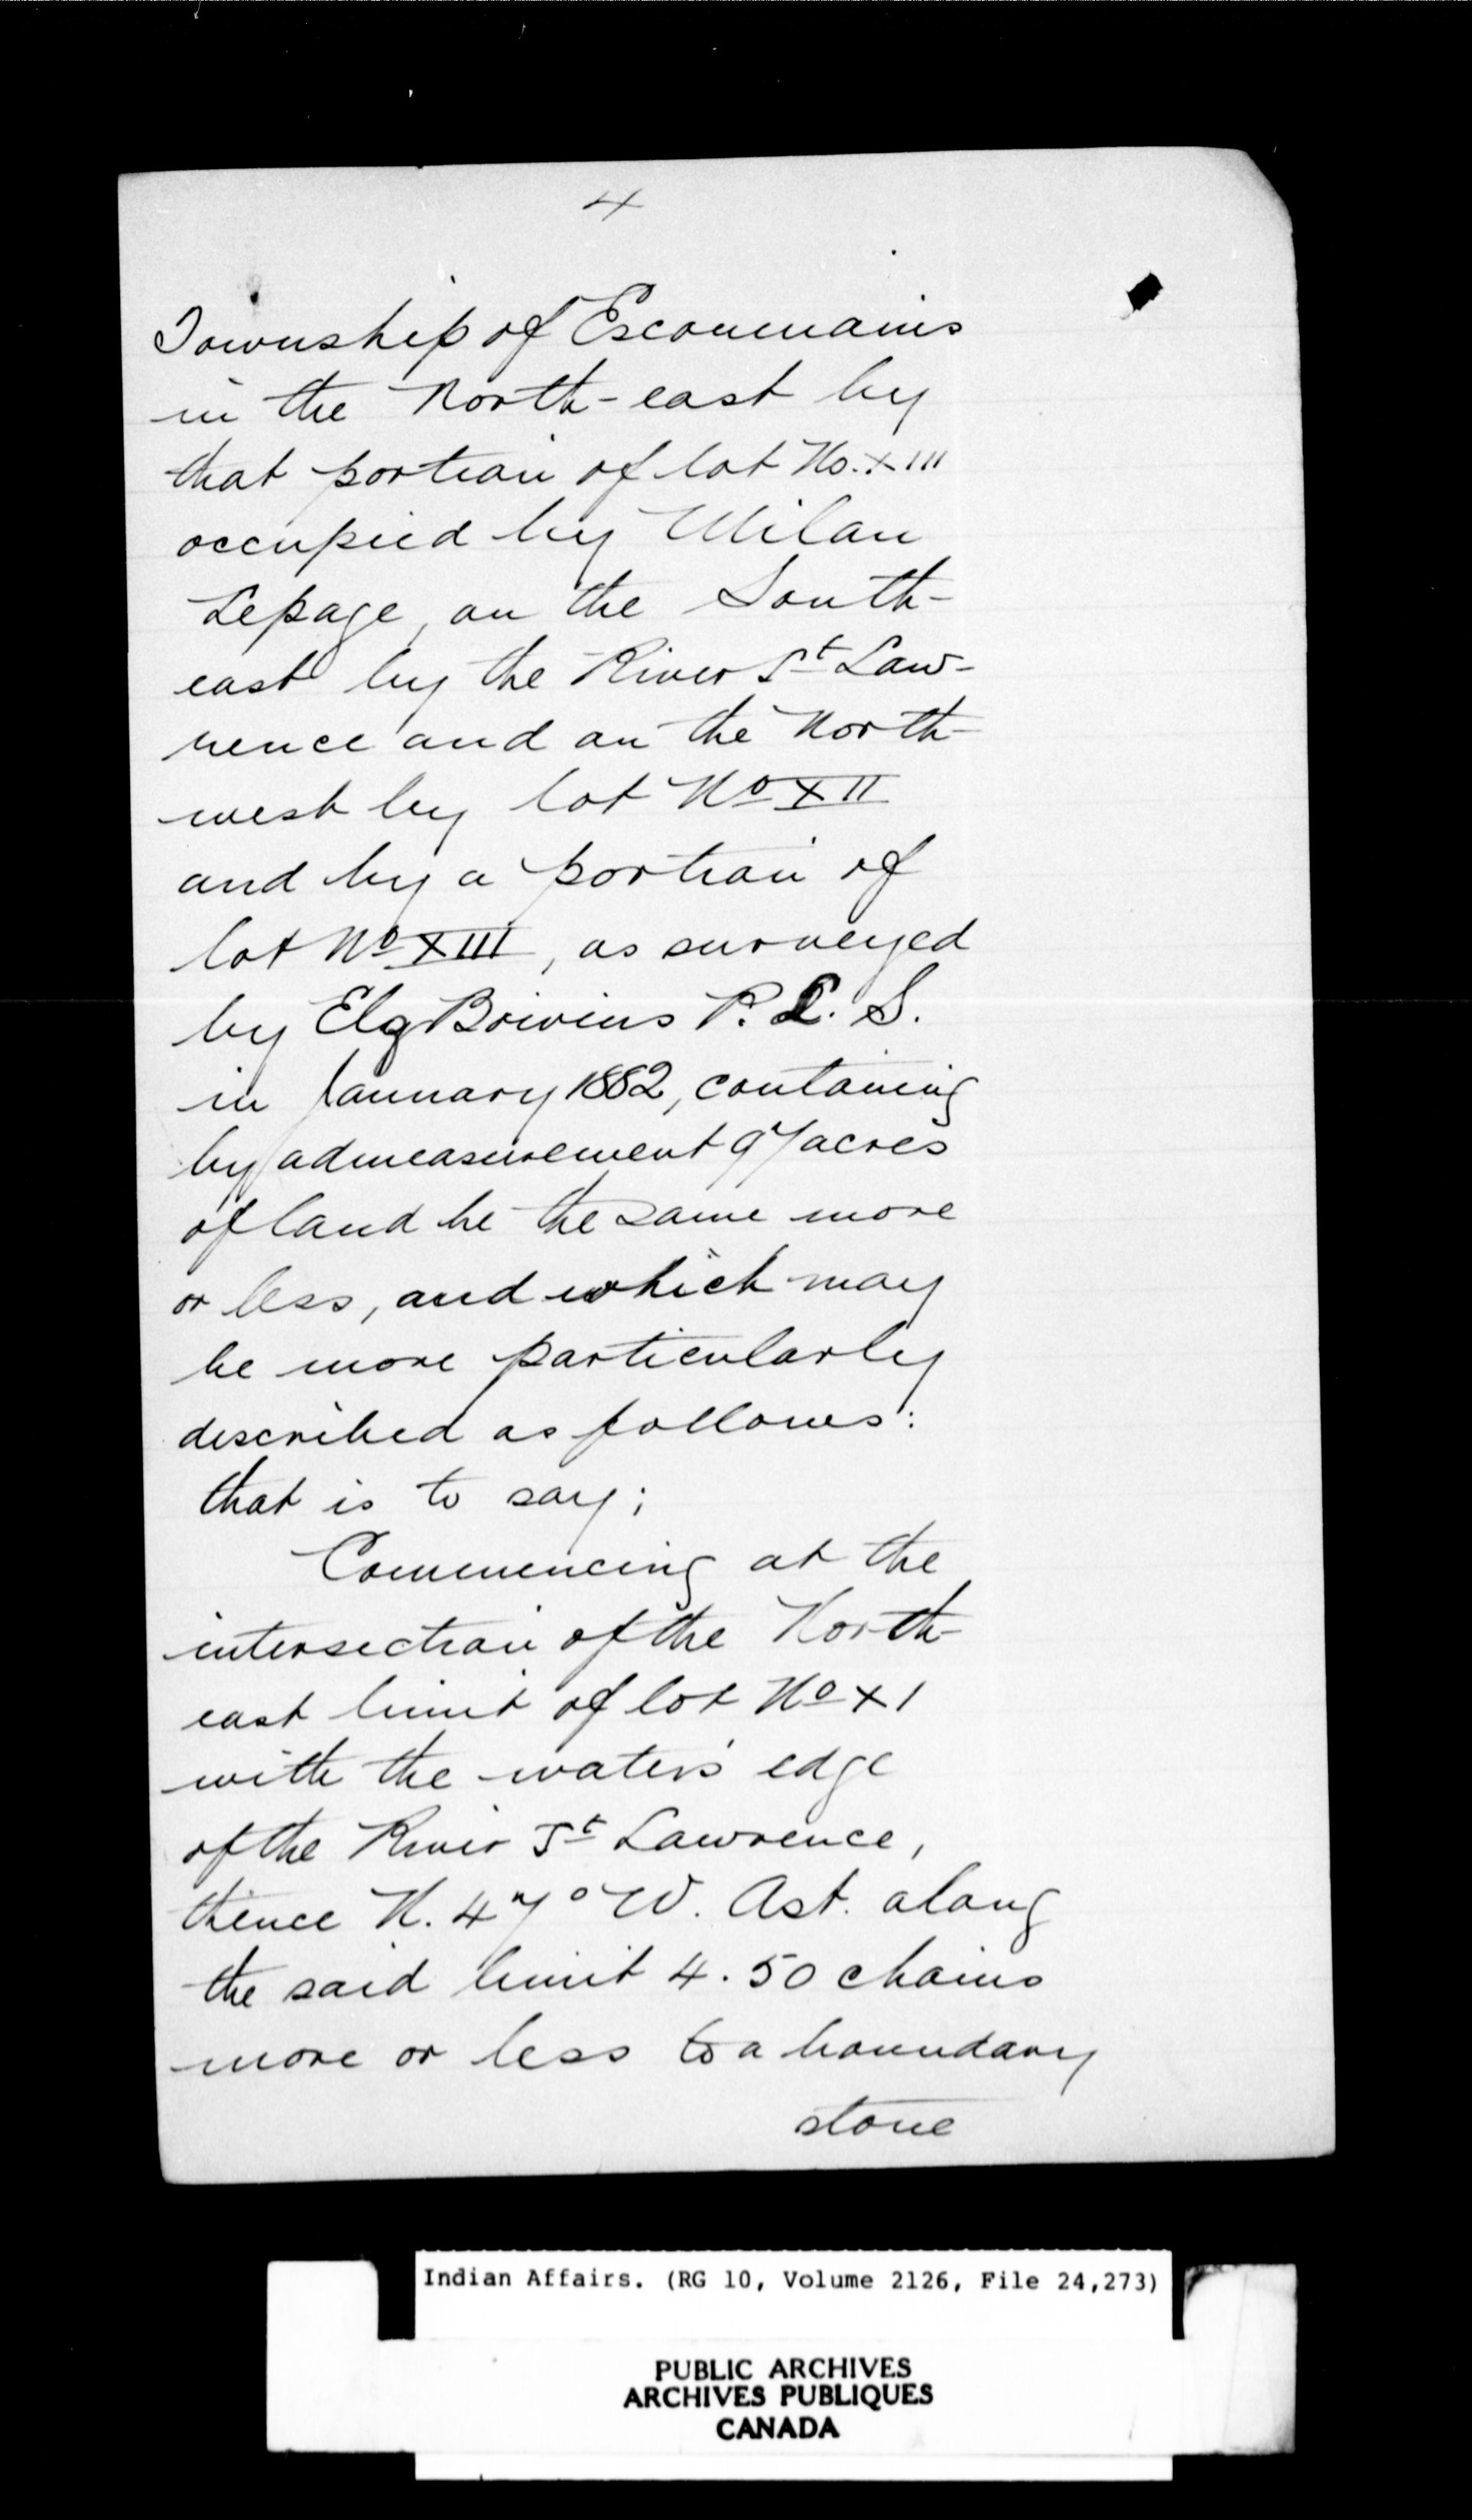 4
Township of Escoumains
in the North-east by
that portion of lot No. XIII
occupied by Milan
Lepage, on the South-
east by the River St Law-
rence and on the North-
west by lot No XII
and by a portion of
lot No XIII, as surveyed
by Elz Boivins P. L. S.
in January 1882, containing
by admeasurement 97 acres
of land be the same more
or less, and which may
be more particularly
described as follows:
that is to say;
Commencing at the
intersection of the North-
east limit of lot No XI
with the water's edge
of the River St Lawrence,
thence N. 47° W. Ast. along
the said limit 4.50 chains
more or less to a boundary
stone
Indian Affairs. (RG 10, Volume 2126, File 24,273)
PUBLIC ARCHIVES
ARCHIVES PUBLIQUES
CANADA